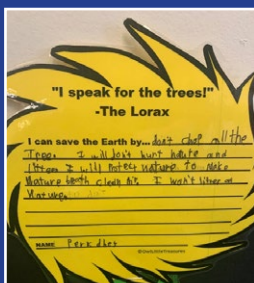 "I speak for the trees!"
-The Lorax
I can save the Earth by... don't chop all the
Trees. I will don't hurt nature and
I will Protect nature to make
Nature clean air. I won't litter on
Nature.
NAME